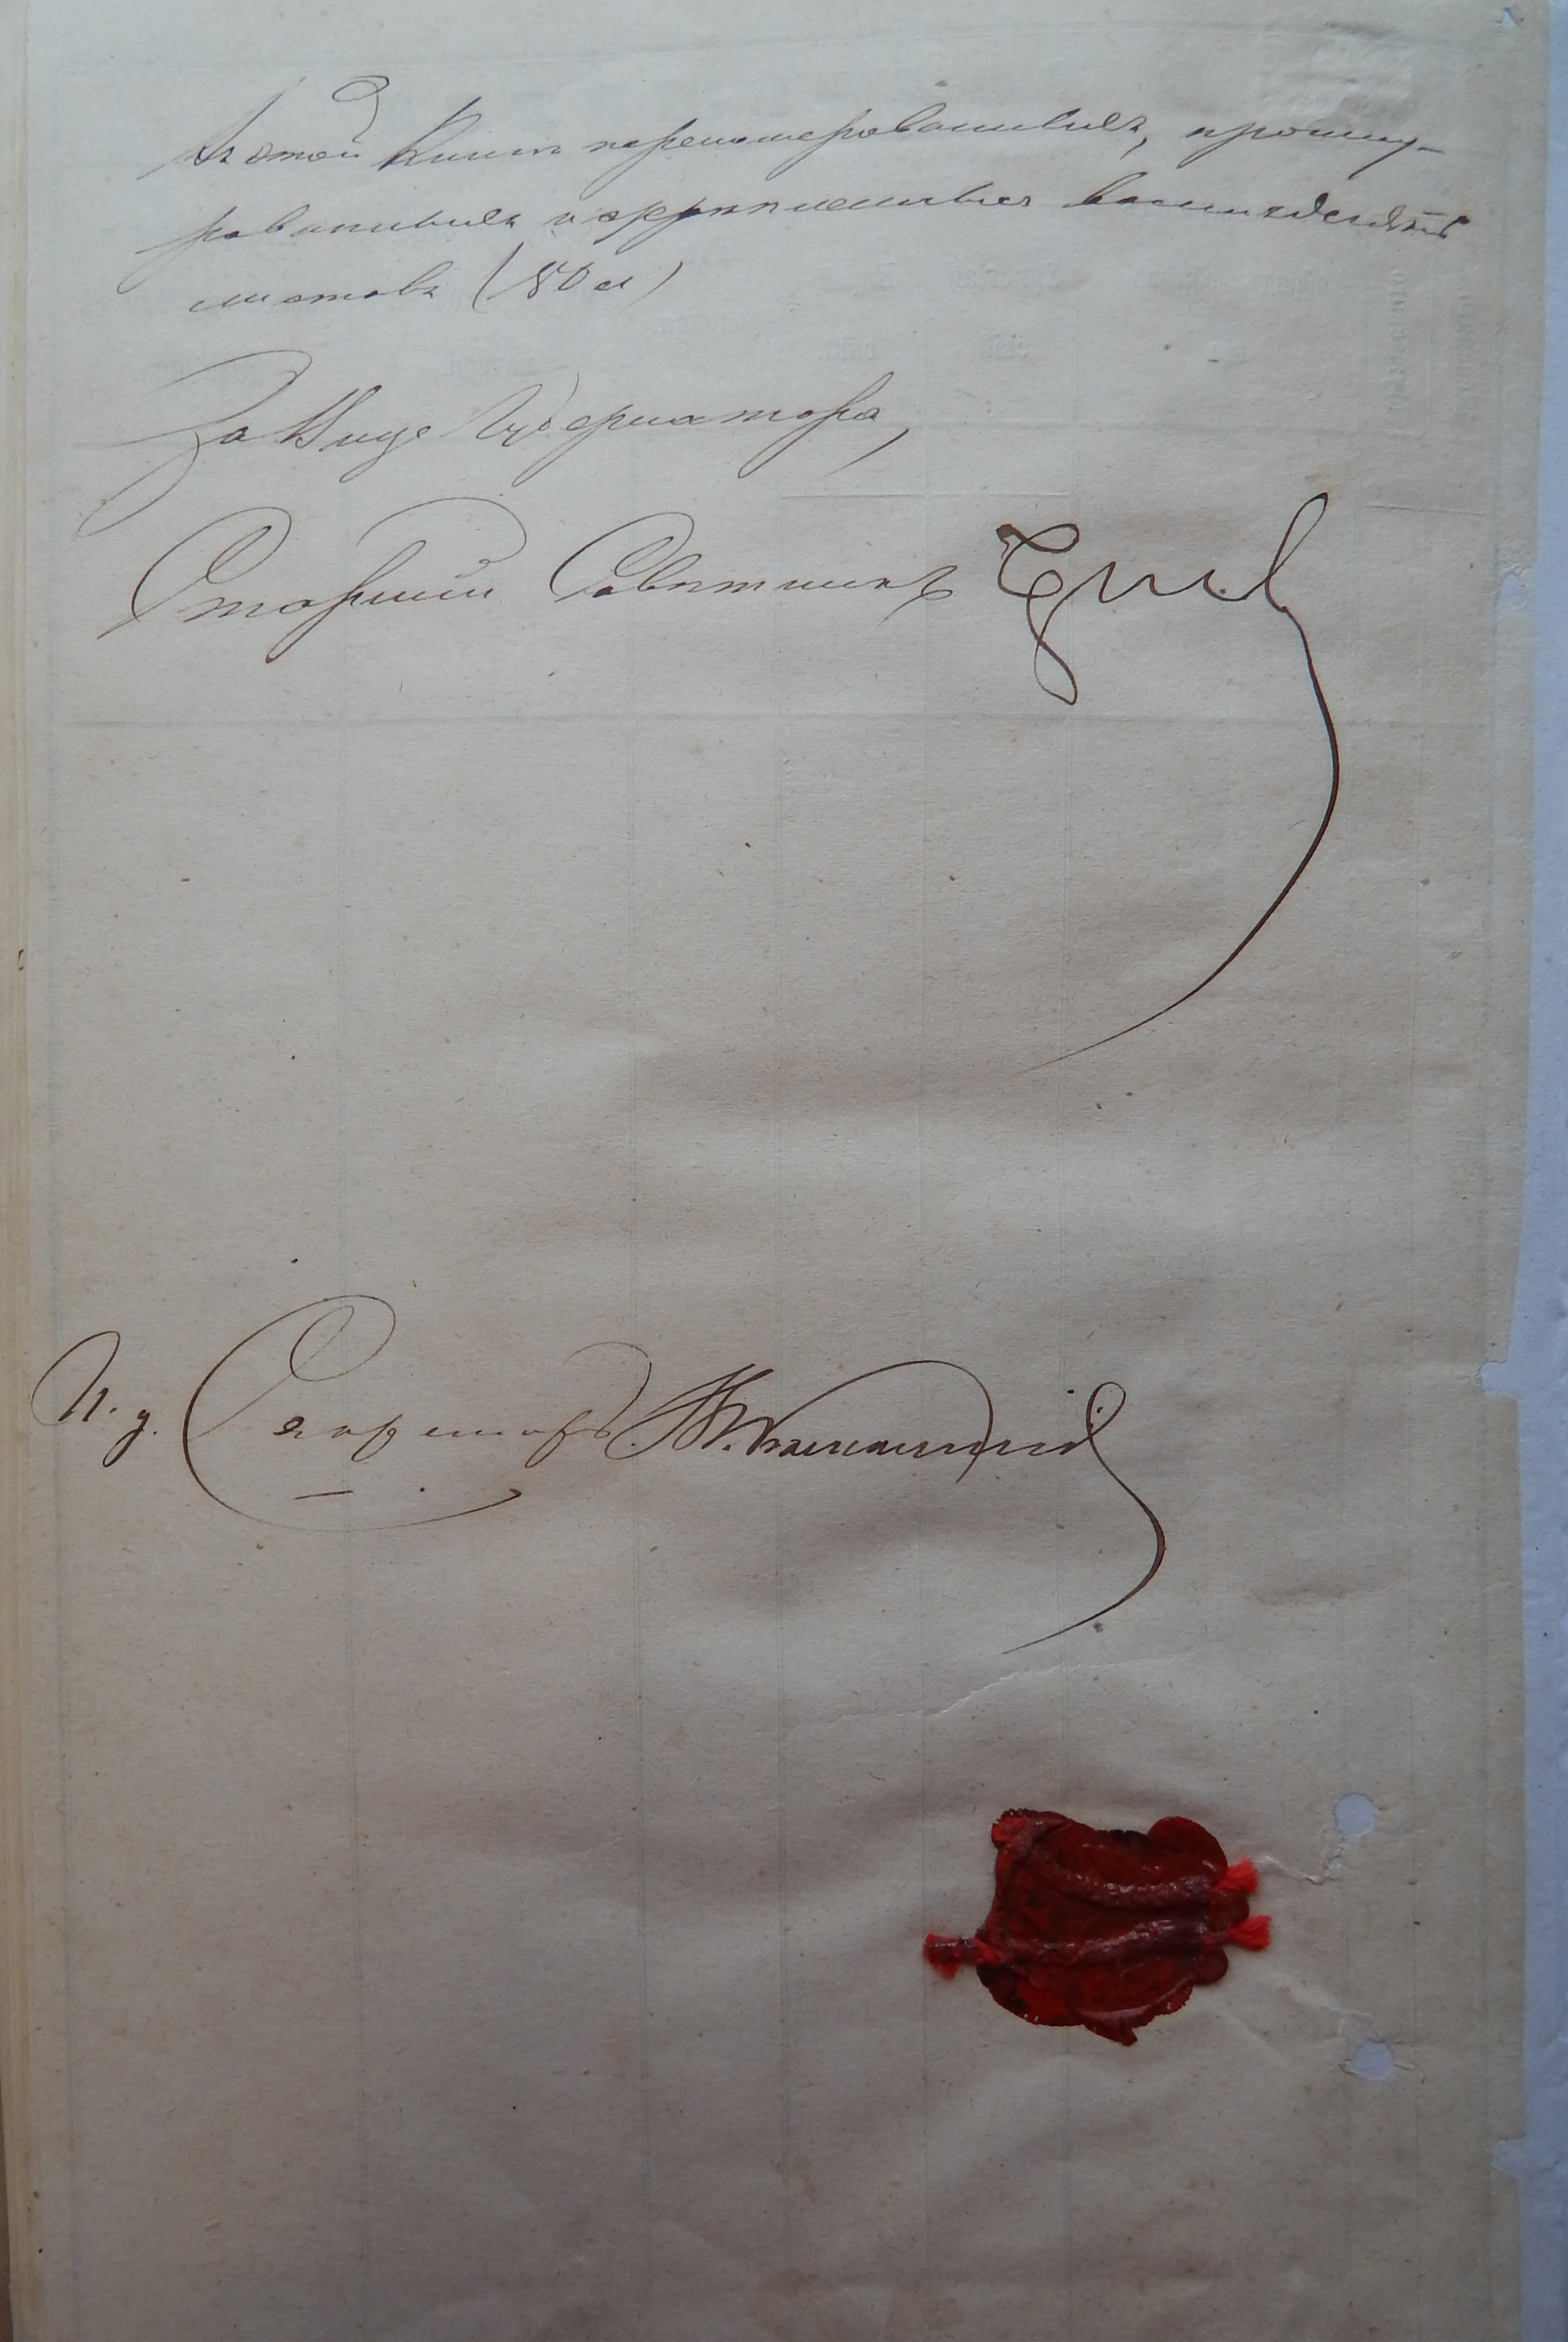 Въ этой Книгѣ перенумерованныхъ, прошну-
рованныхъ и скрѣпленныхъ восемьдесятъ
листовъ (80 л)
За Вице Губернатора,
Старшій Совѣтникъ
И. д. Секретаря